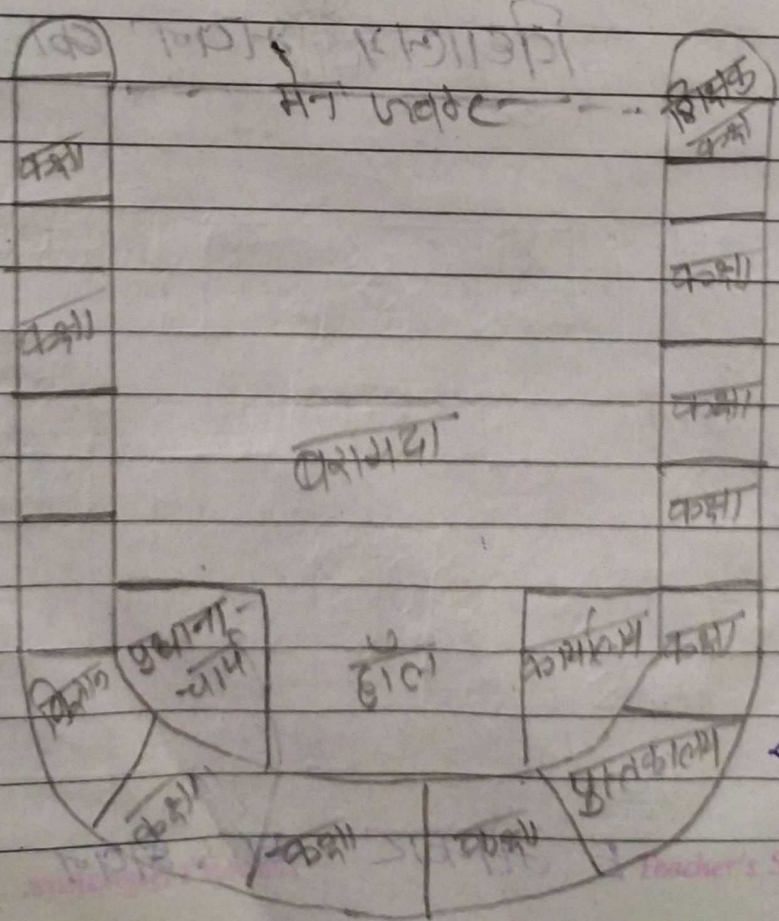 मेन गेट
शिक्षक
कक्ष
कक्षा
कक्षा
कक्षा
कक्षा
बरामदा
कक्षा
प्रधाना-
चार्य
हॉल
कार्यालय
कक्षा
विज्ञान
पुस्तकालय
कक्षा
कक्षा
कक्षा
Teacher's S